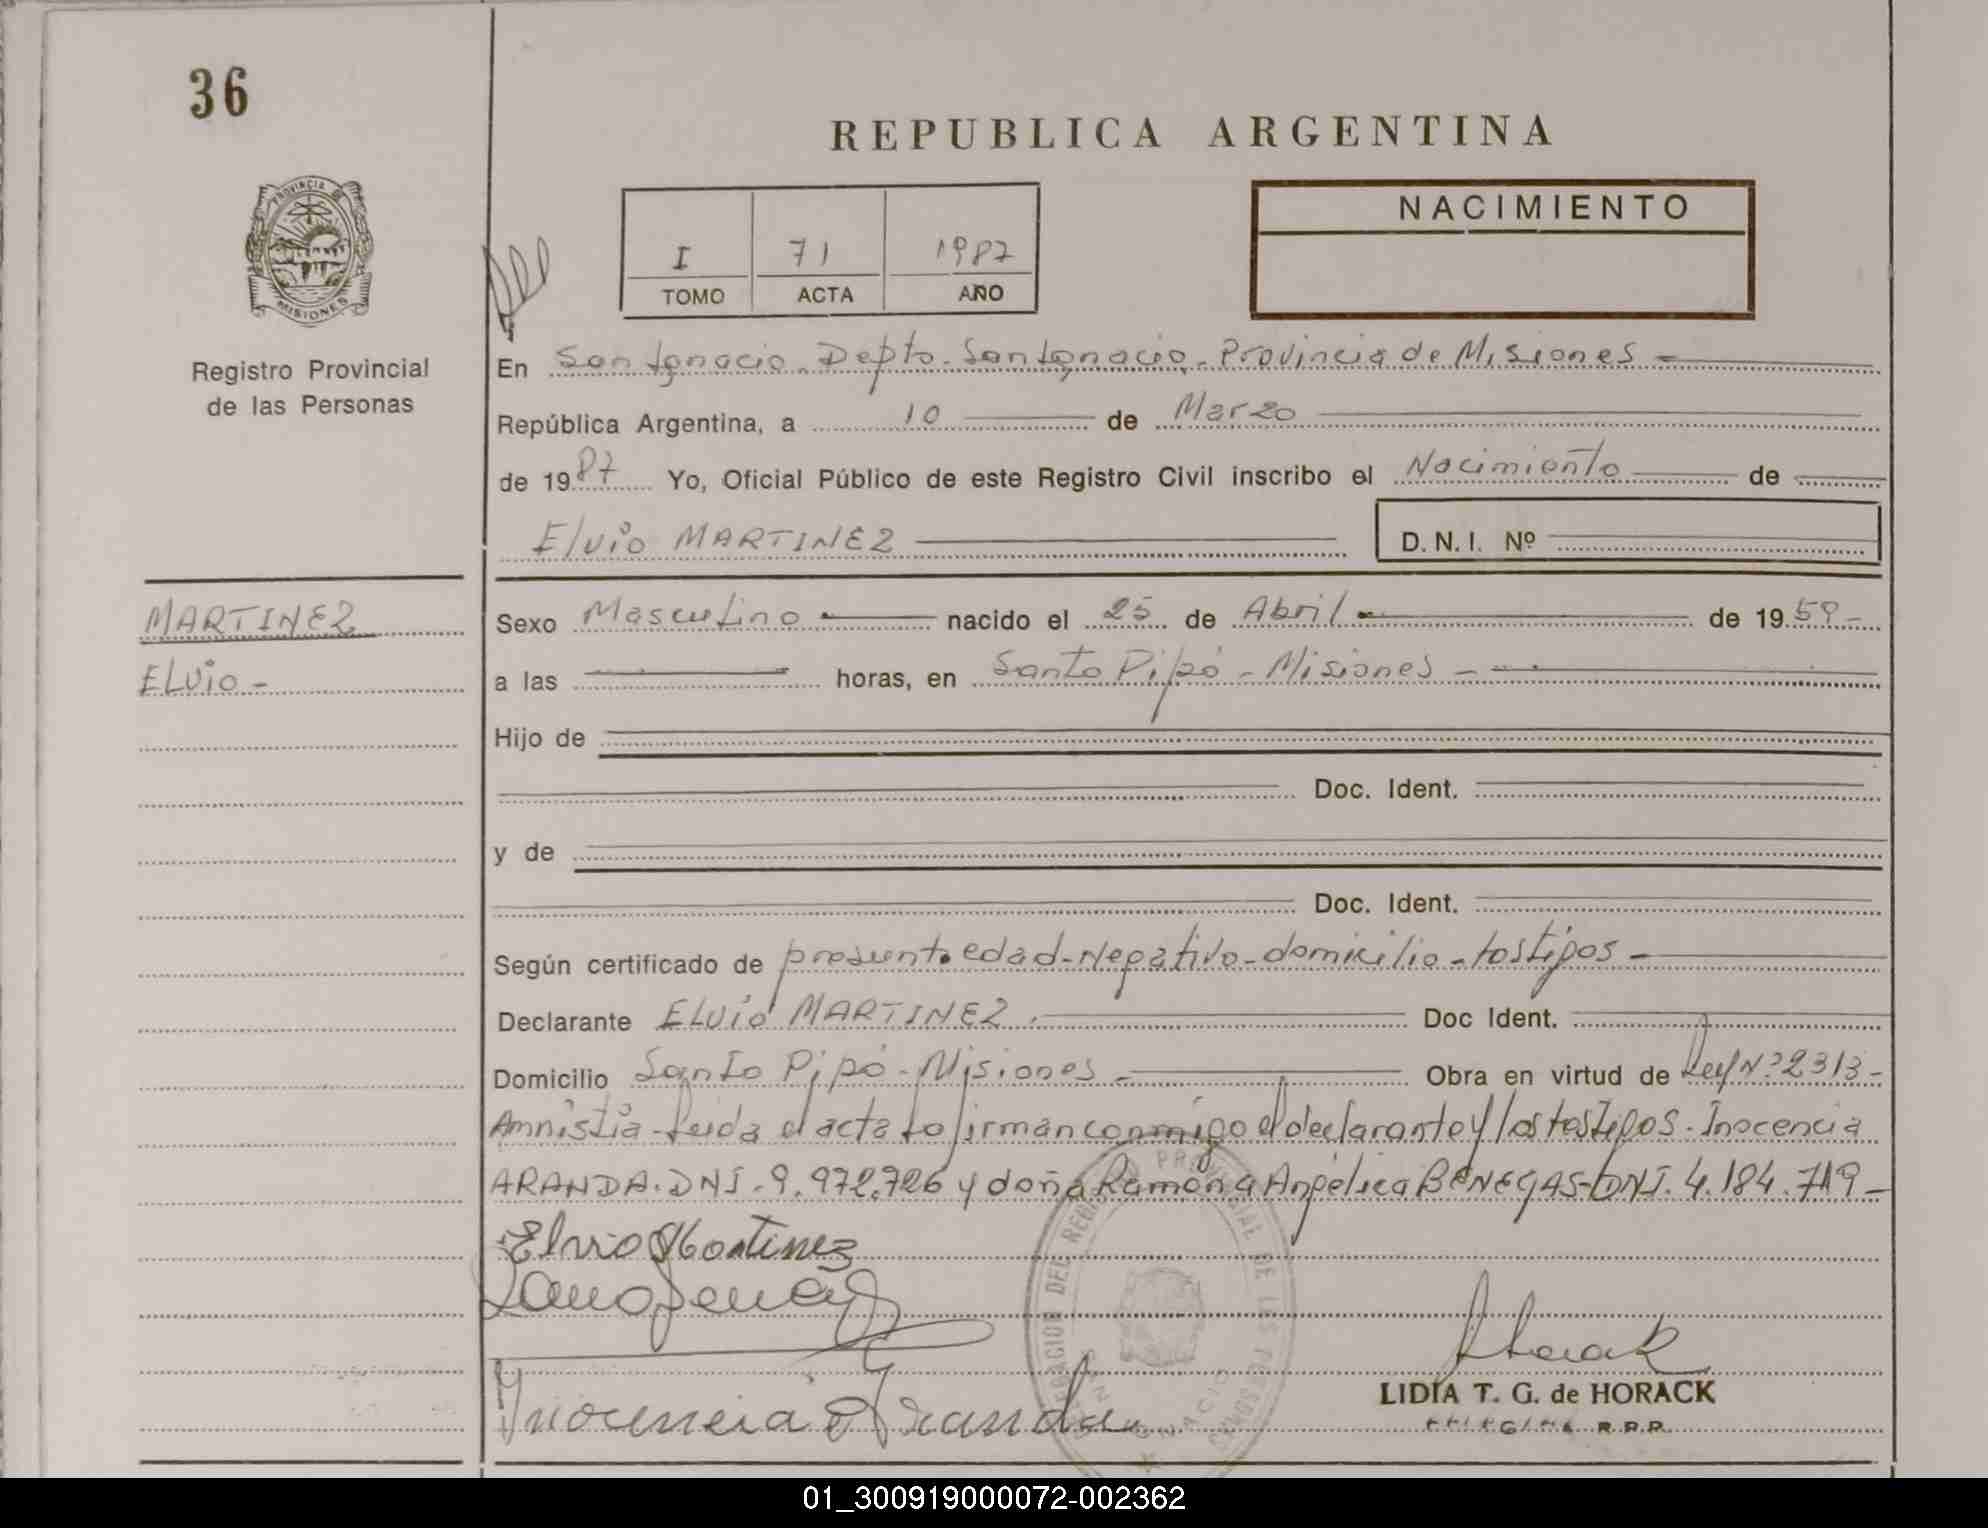 36
REPUBLICA ARGENTINA
PROVINCIA DE
MISIONES
Registro Provincial
de las Personas
NACIMIENTO
I 71 1987
TOMO ACTA AÑO
En San Ignacio - Depto. San Ignacio - Provincia de Misiones -
República Argentina, a 10 de Marzo
de 1987 Yo, Oficial Público de este Registro Civil inscribo el Nacimiento de
Elvio MARTINEZ D.N.I. Nº
MARTINEZ
ELVIO -
Sexo Masculino nacido el 25 de Abril de 1959 -
a las horas, en Santo Pipó - Misiones -
Hijo de
Doc. Ident.
y de
Doc. Ident.
Según certificado de presunta edad - Negativo - domicilio - testigos -
Declarante ELVIO MARTINEZ. Doc Ident.
Domicilio Santo Pipó - Misiones - Obra en virtud de Ley Nº 2313 -
Amnistia - Leida el acta la firman conmigo el declarante y los testigos - Inocencia
ARANDA. DNI. 9.972.726 y doña Ramona Angélica BENEGAS - DNI. 4.184.719 -
Elvio Martinez
Inocencia Aranda
DEL REGISTRO PROVINCIAL DE LAS PERSONAS
SAN IGNACIO
Horack
LIDIA T. G. de HORACK
R.P.P.
01_300919000072-002362